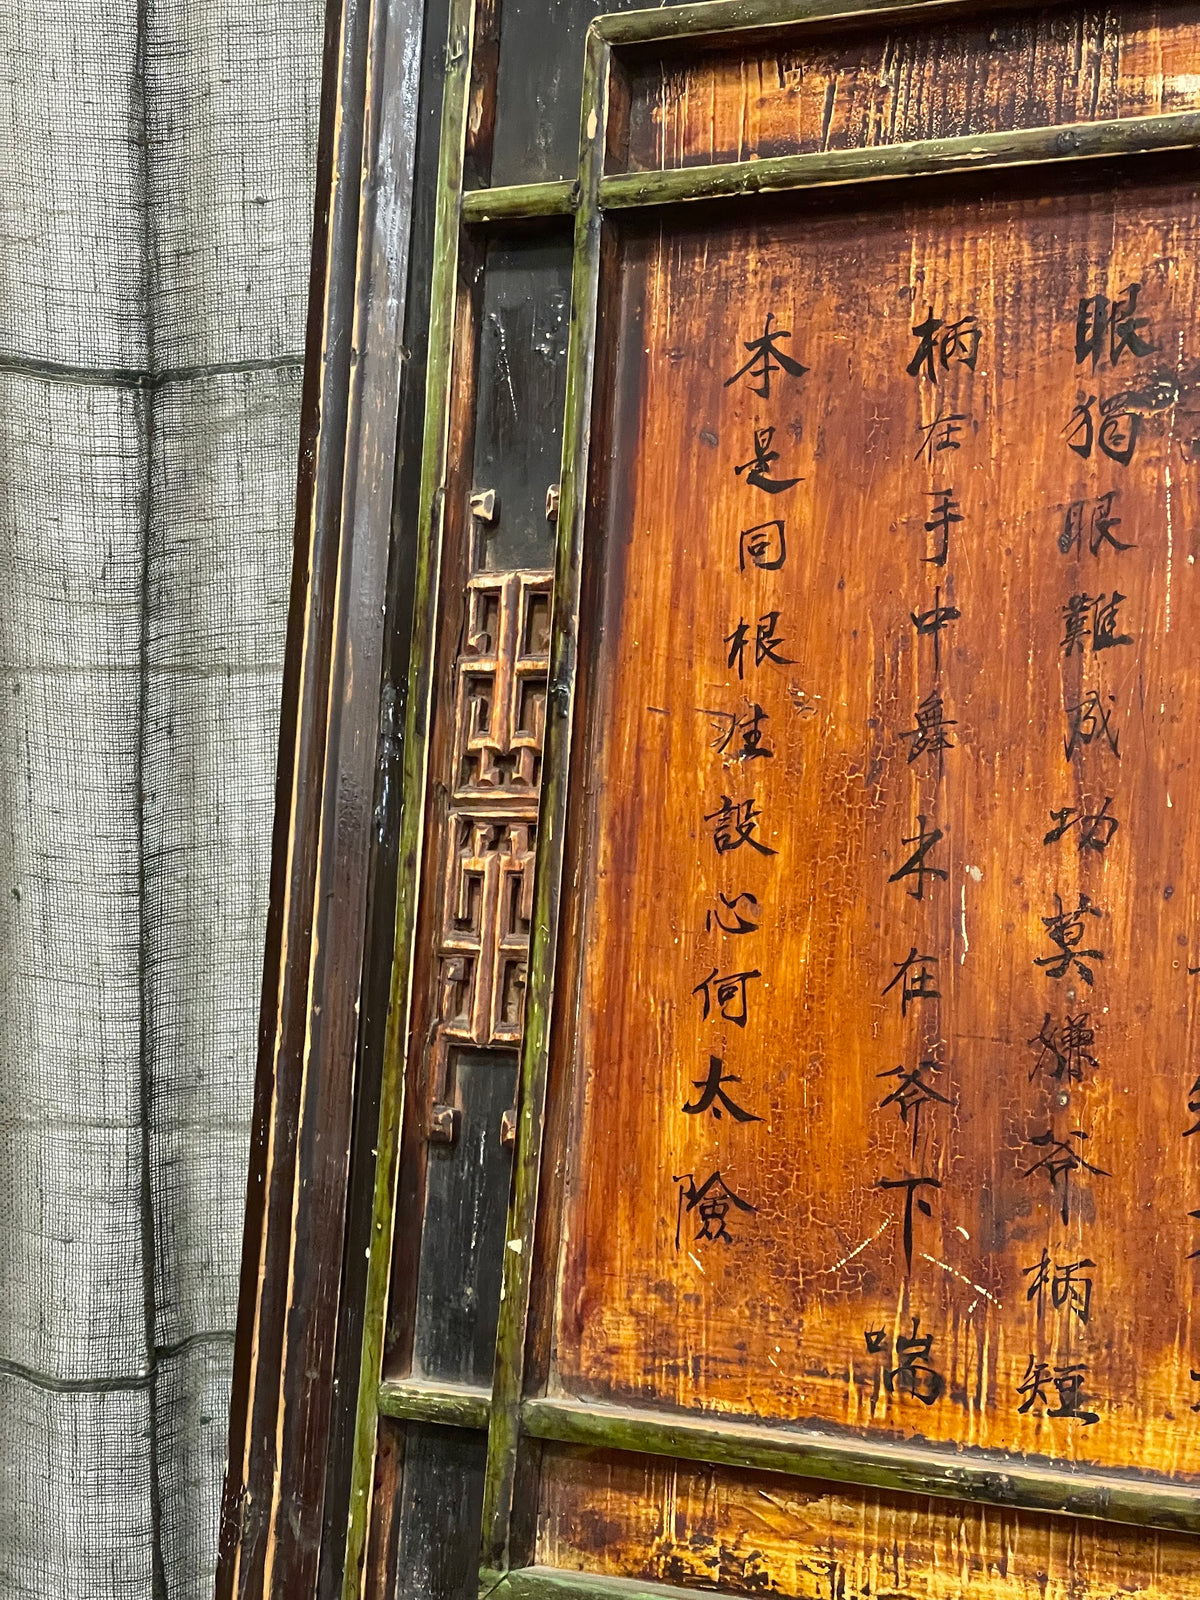 眼獨眼難成功莫嫌斧柄短
柄在手中舞木在斧下喘
本是同根生設心何太險